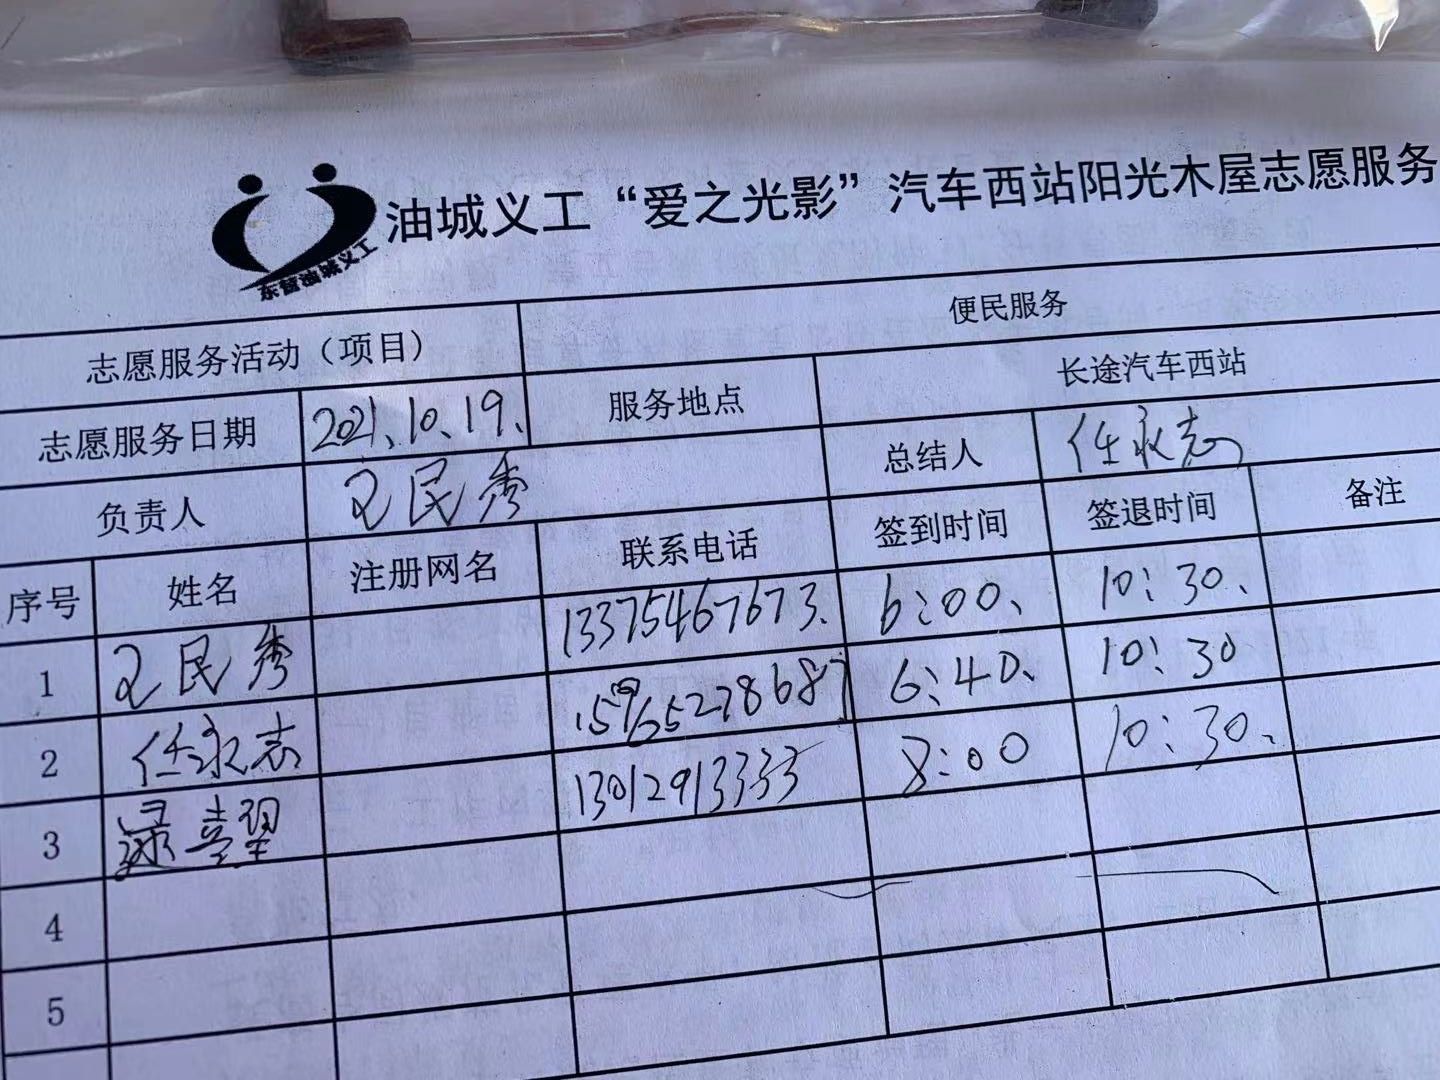 油城义工“爱之光影”汽车西站阳光木屋志愿服务
东营油城义工
志愿服务活动（项目） 便民服务
志愿服务日期 2021.10.19. 服务地点 长途汽车西站
负责人 民秀 总结人 任永志
序号 姓名 注册网名 联系电话 签到时间 签退时间 备注
1 民秀 13375467673. 6:00、 10:30、
2 任永志 6:40、 10:30
3 13012913333 8:00 10:30、
4
5